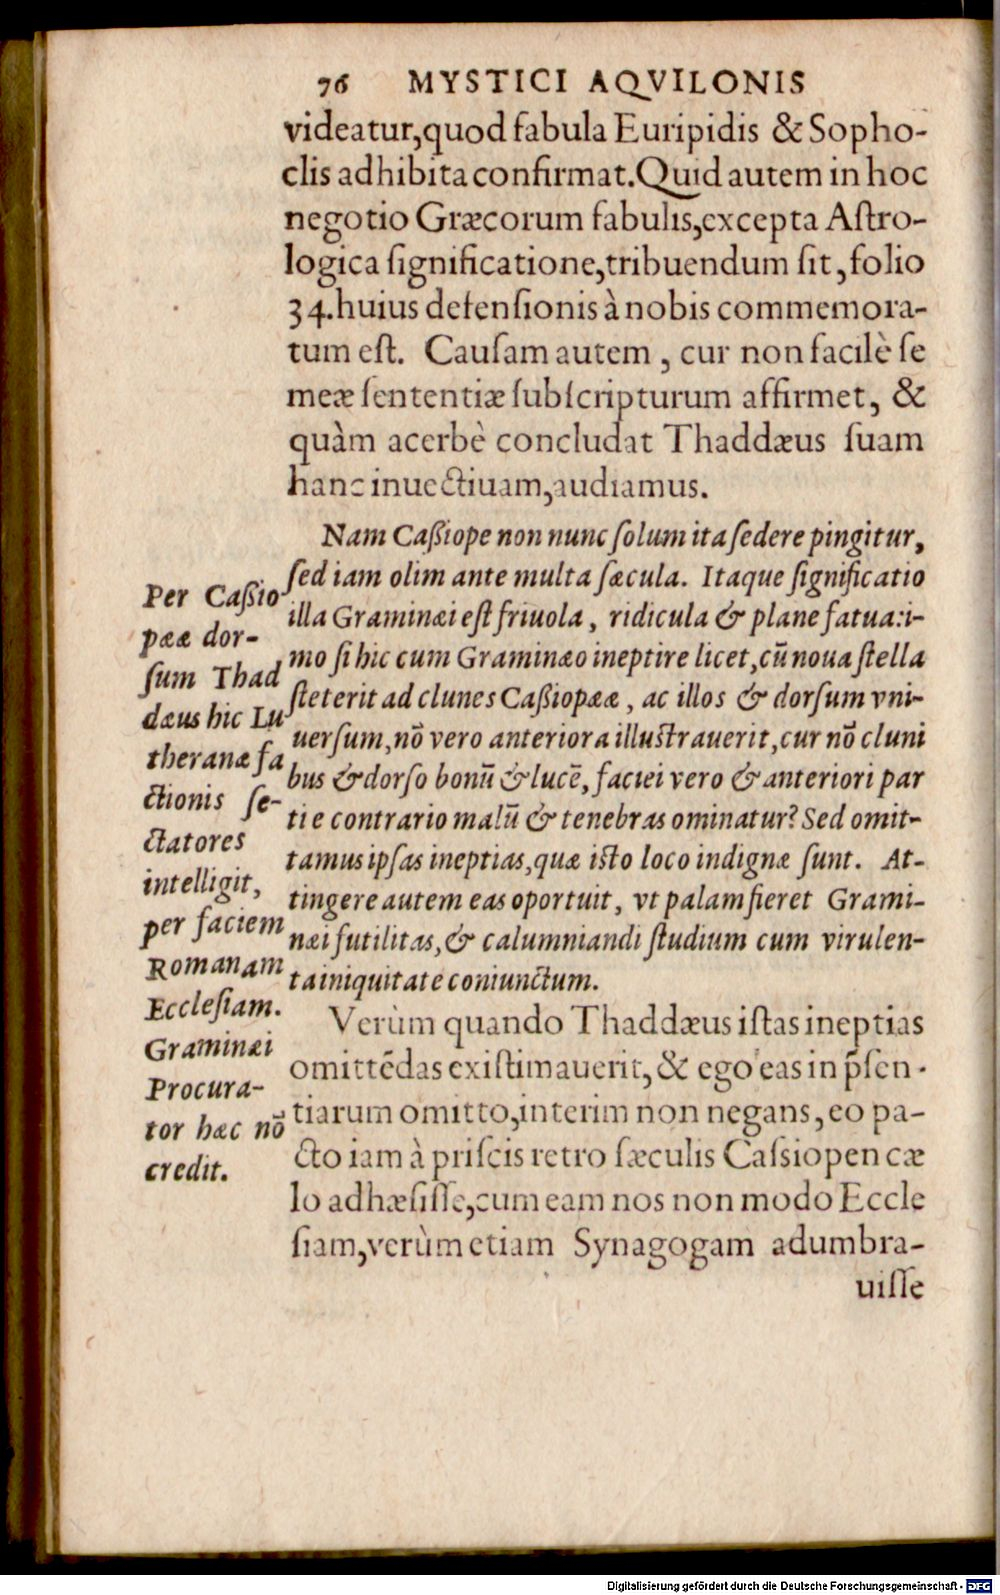 76 MYSTICI AQVILONIS
videatur,quod fabula Euripidis & Sopho-
clis adhibita confirmat.Quid autem in hoc
negotio Græcorum fabulis,excepta Aſtro-
logica ſignificatione,tribuendum ſit,folio
34.huius defenſionis à nobis commemora-
tum eſt. Cauſam autem, cur non facilè ſe
meæ ſententiæ ſubſcripturum affirmet, &
quàm acerbè concludat Thaddæus ſuam
hanc inuectiuam,audiamus.
Nam Caßiope non nunc ſolum ita ſedere pingitur,
ſed iam olim ante multa ſæcula. Itaque ſignificatio
illa Graminæi eſt friuola, ridicula & plane fatua:i-
mo ſi hic cum Graminæo ineptire licet,cũ noua ſtella
ſteterit ad clunes Caßiopææ, ac illos & dorſum vni-
uerſum,nõ vero anteriora illuſtrauerit,cur nõ cluni
bus & dorſo bonũ & lucẽ, faciei vero & anteriori par
ti e contrario malũ & tenebras ominatur? Sed omit-
tamus ipſas ineptias,quæ iſto loco indignæ ſunt. At-
tingere autem eas oportuit, vt palam fieret Grami-
næi futilitas,& calumniandi ſtudium cum virulen-
ta iniquitate coniunctum.
Per Caßio
pææ dor-
ſum Thad
dæus hic Lu
theranæ fa
ctionis ſe-
ctatores
intelligit,
per faciem
Romanam
Eccleſiam.
Graminæi
Procura-
tor hæc nõ
credit.
Verùm quando Thaddæus iſtas ineptias
omittẽdas exiſtimauerit, & ego eas in p̃ſen-
tiarum omitto,interim non negans, eo pa-
cto iam à priſcis retro ſæculis Caſsiopen cæ
lo adhæſiſſe,cum eam nos non modo Eccle
ſiam,verùm etiam Synagogam adumbra-
uiſſe
Digitalisierung gefördert durch die Deutsche Forschungsgemeinschaft - DFG